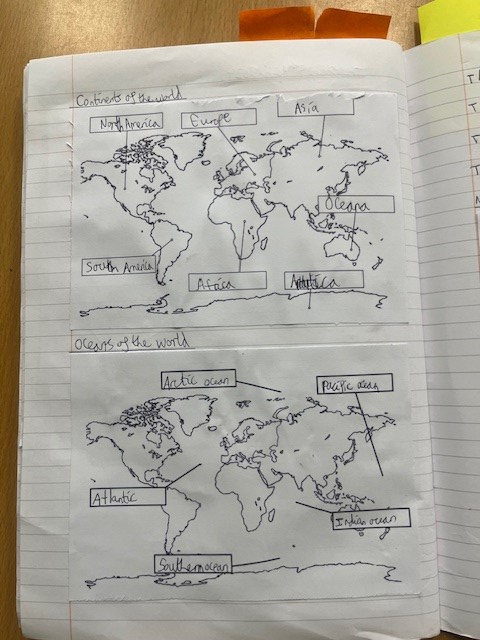 Continents of the world
North America
Europe
Asia
Oceana
South America
Africa
Oceans of the world
Arctic ocean
Pacific ocean
Atlantic
Indian ocean
Southern ocean